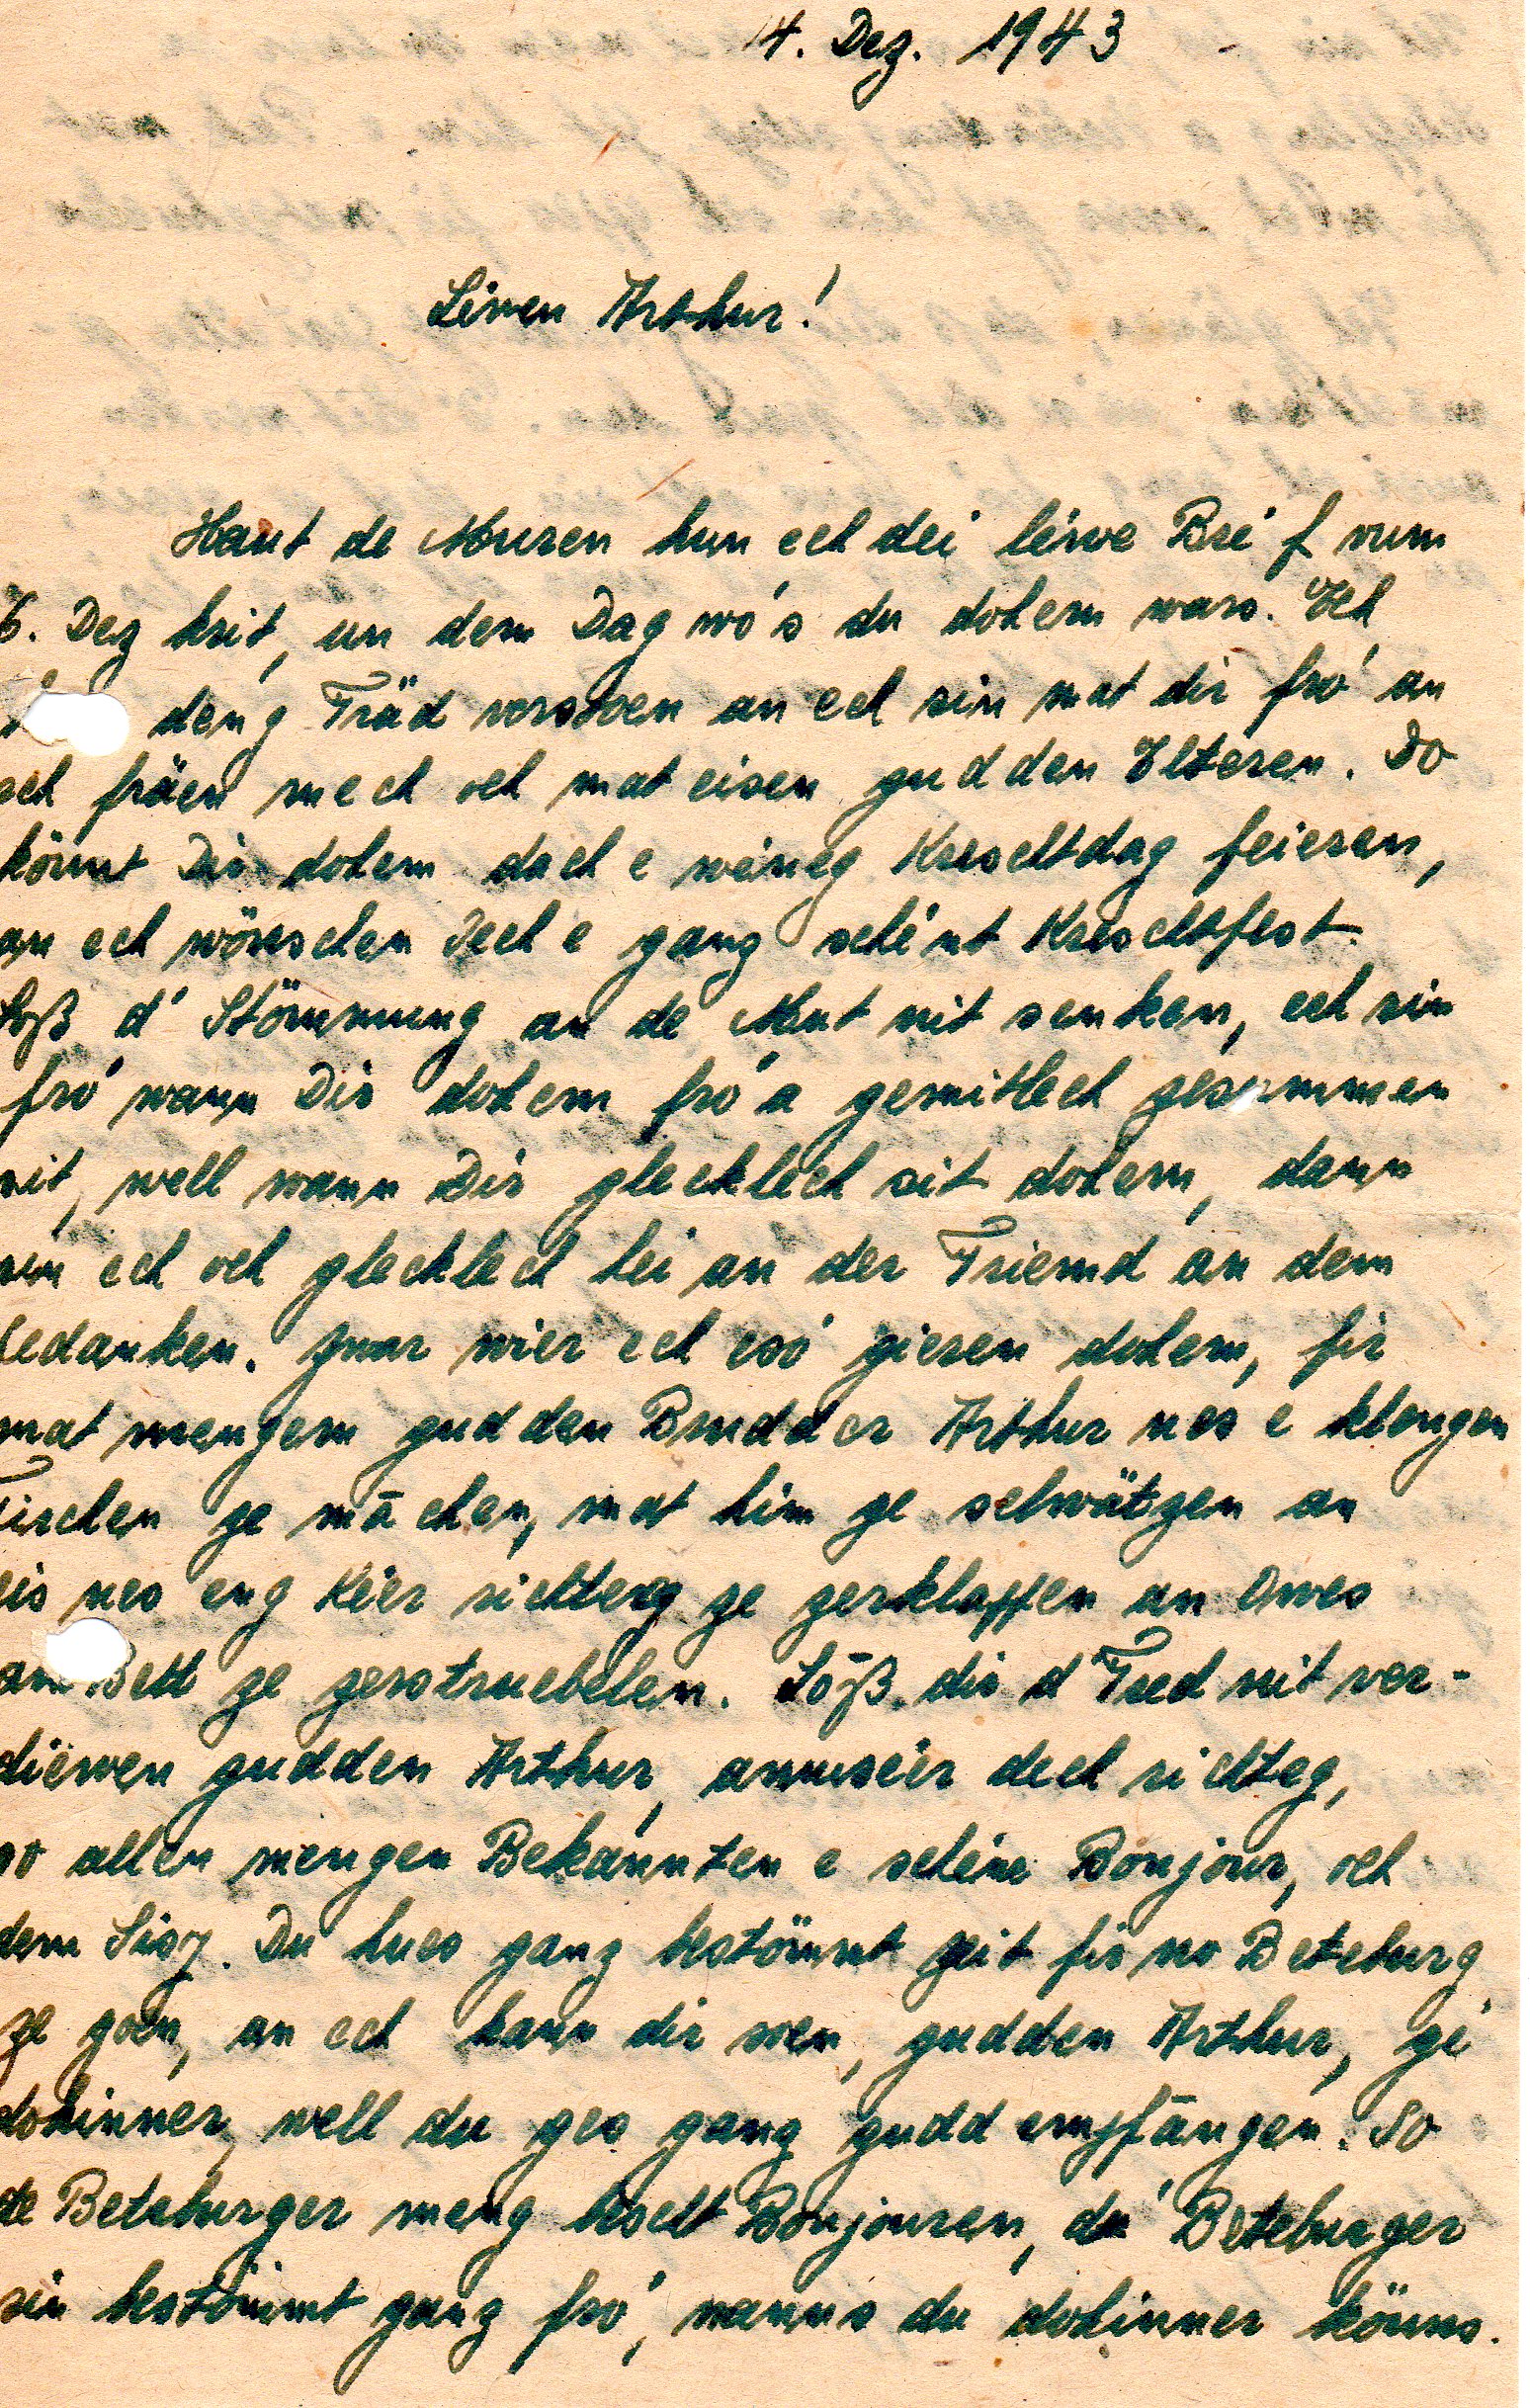 14. Dez. 1943
Léiwen Arthur!
Haut de Muren hun ech dei léiwe Bréif vum
6. Dez krit, un dem Dag wó's du dohem wars. Ech
deng Träd verstoen an ech sin mat dir fró an
ech fräen mech och mat eisen gudden Elteren. Do
könnt Dir dohem dach e wéineg Kreschtdag feieren,
an ech wönschen Iech e ganz schéint Kreschtfest.
Loß d' Stömmung an de Mut nit senken, ech sin
fró wann Dir dohem fró a gemittlech zesummen
sit, well wann Dir glecklech sit dohem, dann
sin ech och glecklech hei an der Friemd an dem
Gedanken. Zwar wier ech esó gieren dohem, fir
mat mengem gudden Brudder Arthur nes e klengen
Tirchen ze māchen, mat him ze schwätzen an
eis nes eng Kéier richteg ze zerklappen an Owes
am Bett ze zerstruebelen. Lôß dir d'Fred nit ver-
diérwen gudden Arthur, amuséier dech richteg,
so allen mengen Bekannten e schéine Bonjour, och
dem Sisy. Du hues ganz bestömmt zeit fir no Beteburg
ze goen, an ech kann dir soen, gudden Arthur, gé
dohinner, well du ges ganz gudd empfāngen. So
de Beteburger meng bescht Bonjouren, dé Beteburger
sin bestömmt ganz fró, wanns du dohinner könns.